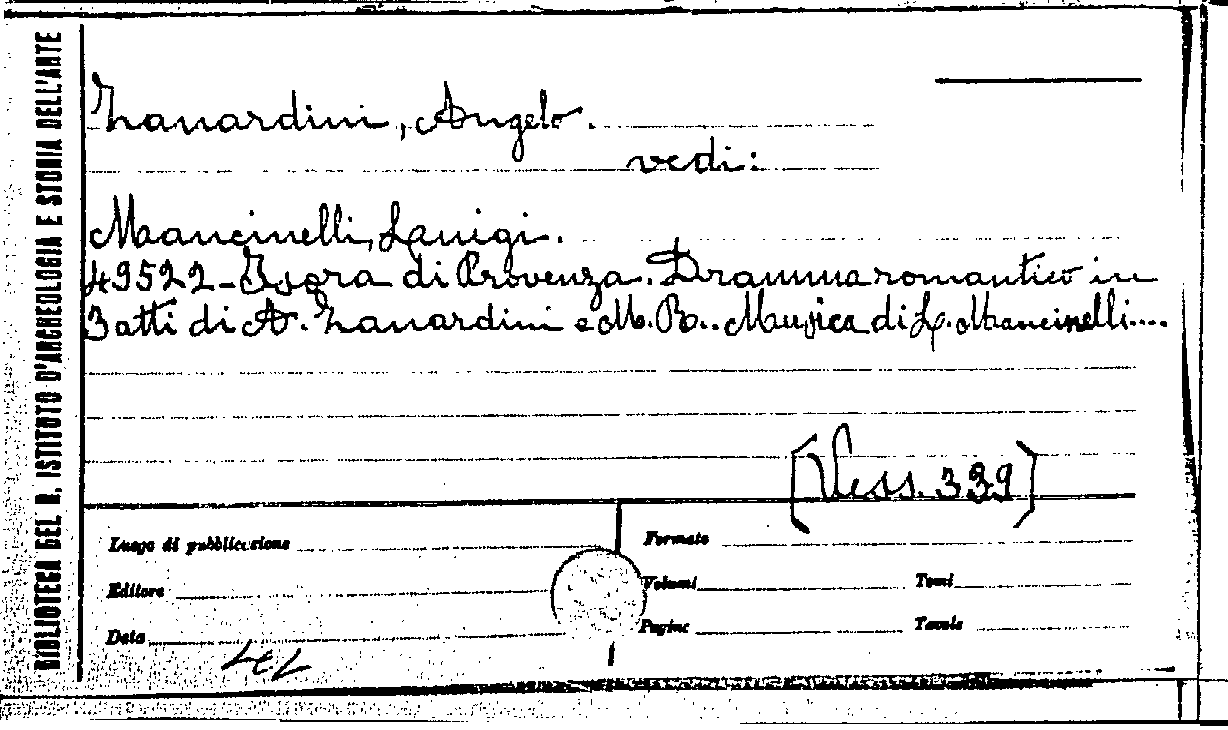 BIBLIOTECA DEL R. ISTITUTO D'ARCHEOLOGIA E STORIA DELL'ARTE
Zanardini, Angelo.
vedi:
Mancinelli, Luigi.
49522 - Isora di Provenza. Dramma romantico in
3 atti di A. Zanardini e M. B.. Musica di L. Mancinelli....
[Vess. 339]
Luogo di pubblicazione
Formato
Editore
Volumi
Tomi
Data
Pagine
Tavole